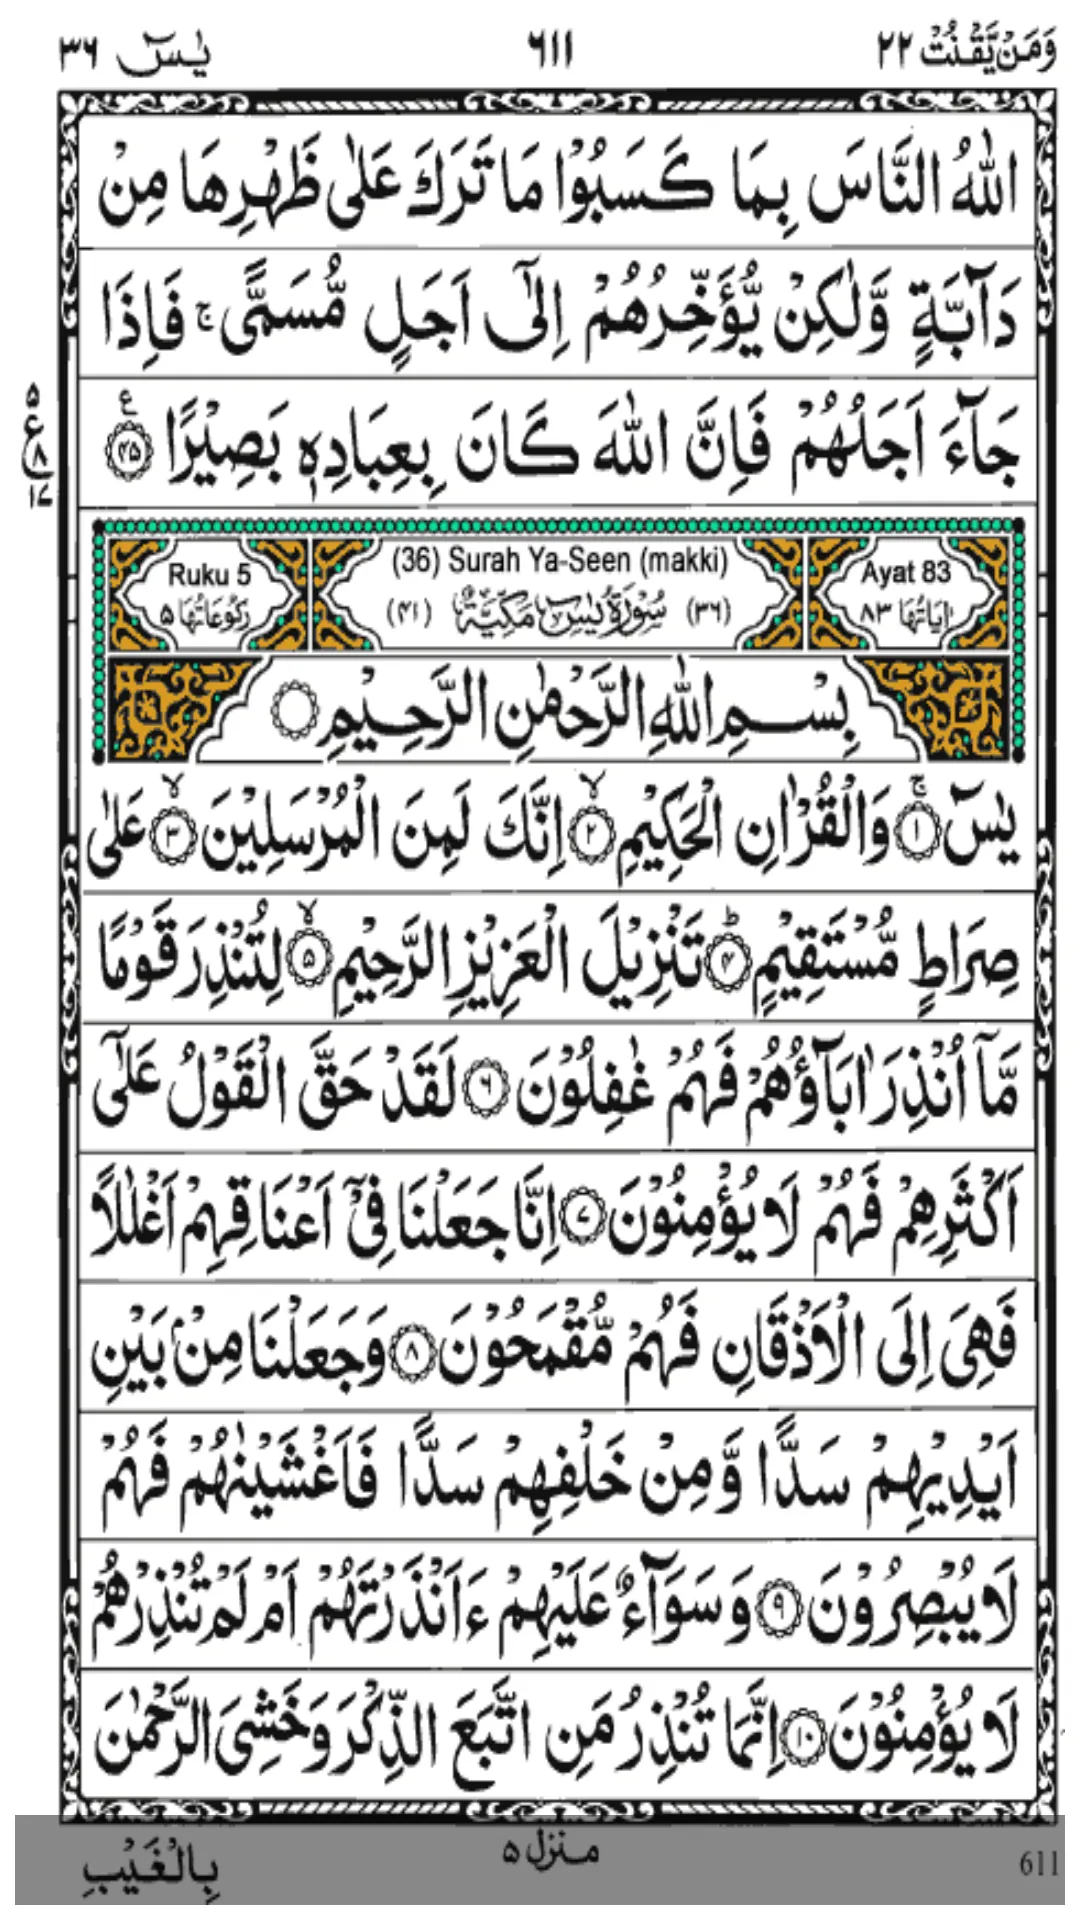 وَمَنْ يَّقْنُتْ ٢٢ ٦١١ يٰسٓ ٣٦
اللّٰهُ النَّاسَ بِمَا كَسَبُوْا مَا تَرَكَ عَلٰى ظَهْرِهَا مِنْ
دَآبَّةٍ وَّلٰكِنْ يُّؤَخِّرُهُمْ اِلٰٓى اَجَلٍ مُّسَمًّى ۚ فَاِذَا
جَآءَ اَجَلُهُمْ فَاِنَّ اللّٰهَ كَانَ بِعِبَادِهٖ بَصِيْرًا ۝۴۵ ع
۵
ع
۸
۱۷
Ayat 83 (36) Surah Ya-Seen (makki) Ruku 5
اٰيَاتُهَا ۸۳ (۳۶) سُوْرَةُ يٰسٓ مَكِّيَّةٌ (۴۱) رُكُوْعَاتُهَا ۵
بِسْمِ اللّٰهِ الرَّحْمٰنِ الرَّحِيْمِ ۝
يٰسٓ ۝۱ۚ وَالْقُرْاٰنِ الْحَكِيْمِ ۝۲ۙ اِنَّكَ لَمِنَ الْمُرْسَلِيْنَ ۝۳ۙ عَلٰى
صِرَاطٍ مُّسْتَقِيْمٍ ۝۴ؕ تَنْزِيْلَ الْعَزِيْزِ الرَّحِيْمِ ۝۵ۙ لِتُنْذِرَ قَوْمًا
مَّآ اُنْذِرَ اٰبَآؤُهُمْ فَهُمْ غٰفِلُوْنَ ۝۶ لَقَدْ حَقَّ الْقَوْلُ عَلٰٓى
اَكْثَرِهِمْ فَهُمْ لَا يُؤْمِنُوْنَ ۝۷ اِنَّا جَعَلْنَا فِيْٓ اَعْنَاقِهِمْ اَغْلٰلًا
فَهِيَ اِلَى الْاَذْقَانِ فَهُمْ مُّقْمَحُوْنَ ۝۸ وَجَعَلْنَا مِنْۢ بَيْنِ
اَيْدِيْهِمْ سَدًّا وَّمِنْ خَلْفِهِمْ سَدًّا فَاَغْشَيْنٰهُمْ فَهُمْ
لَا يُبْصِرُوْنَ ۝۹ وَسَوَآءٌ عَلَيْهِمْ ءَاَنْذَرْتَهُمْ اَمْ لَمْ تُنْذِرْهُمْ
لَا يُؤْمِنُوْنَ ۝۱۰ اِنَّمَا تُنْذِرُ مَنِ اتَّبَعَ الذِّكْرَ وَخَشِيَ الرَّحْمٰنَ
بِالْغَيْبِ منزل ۵ 611